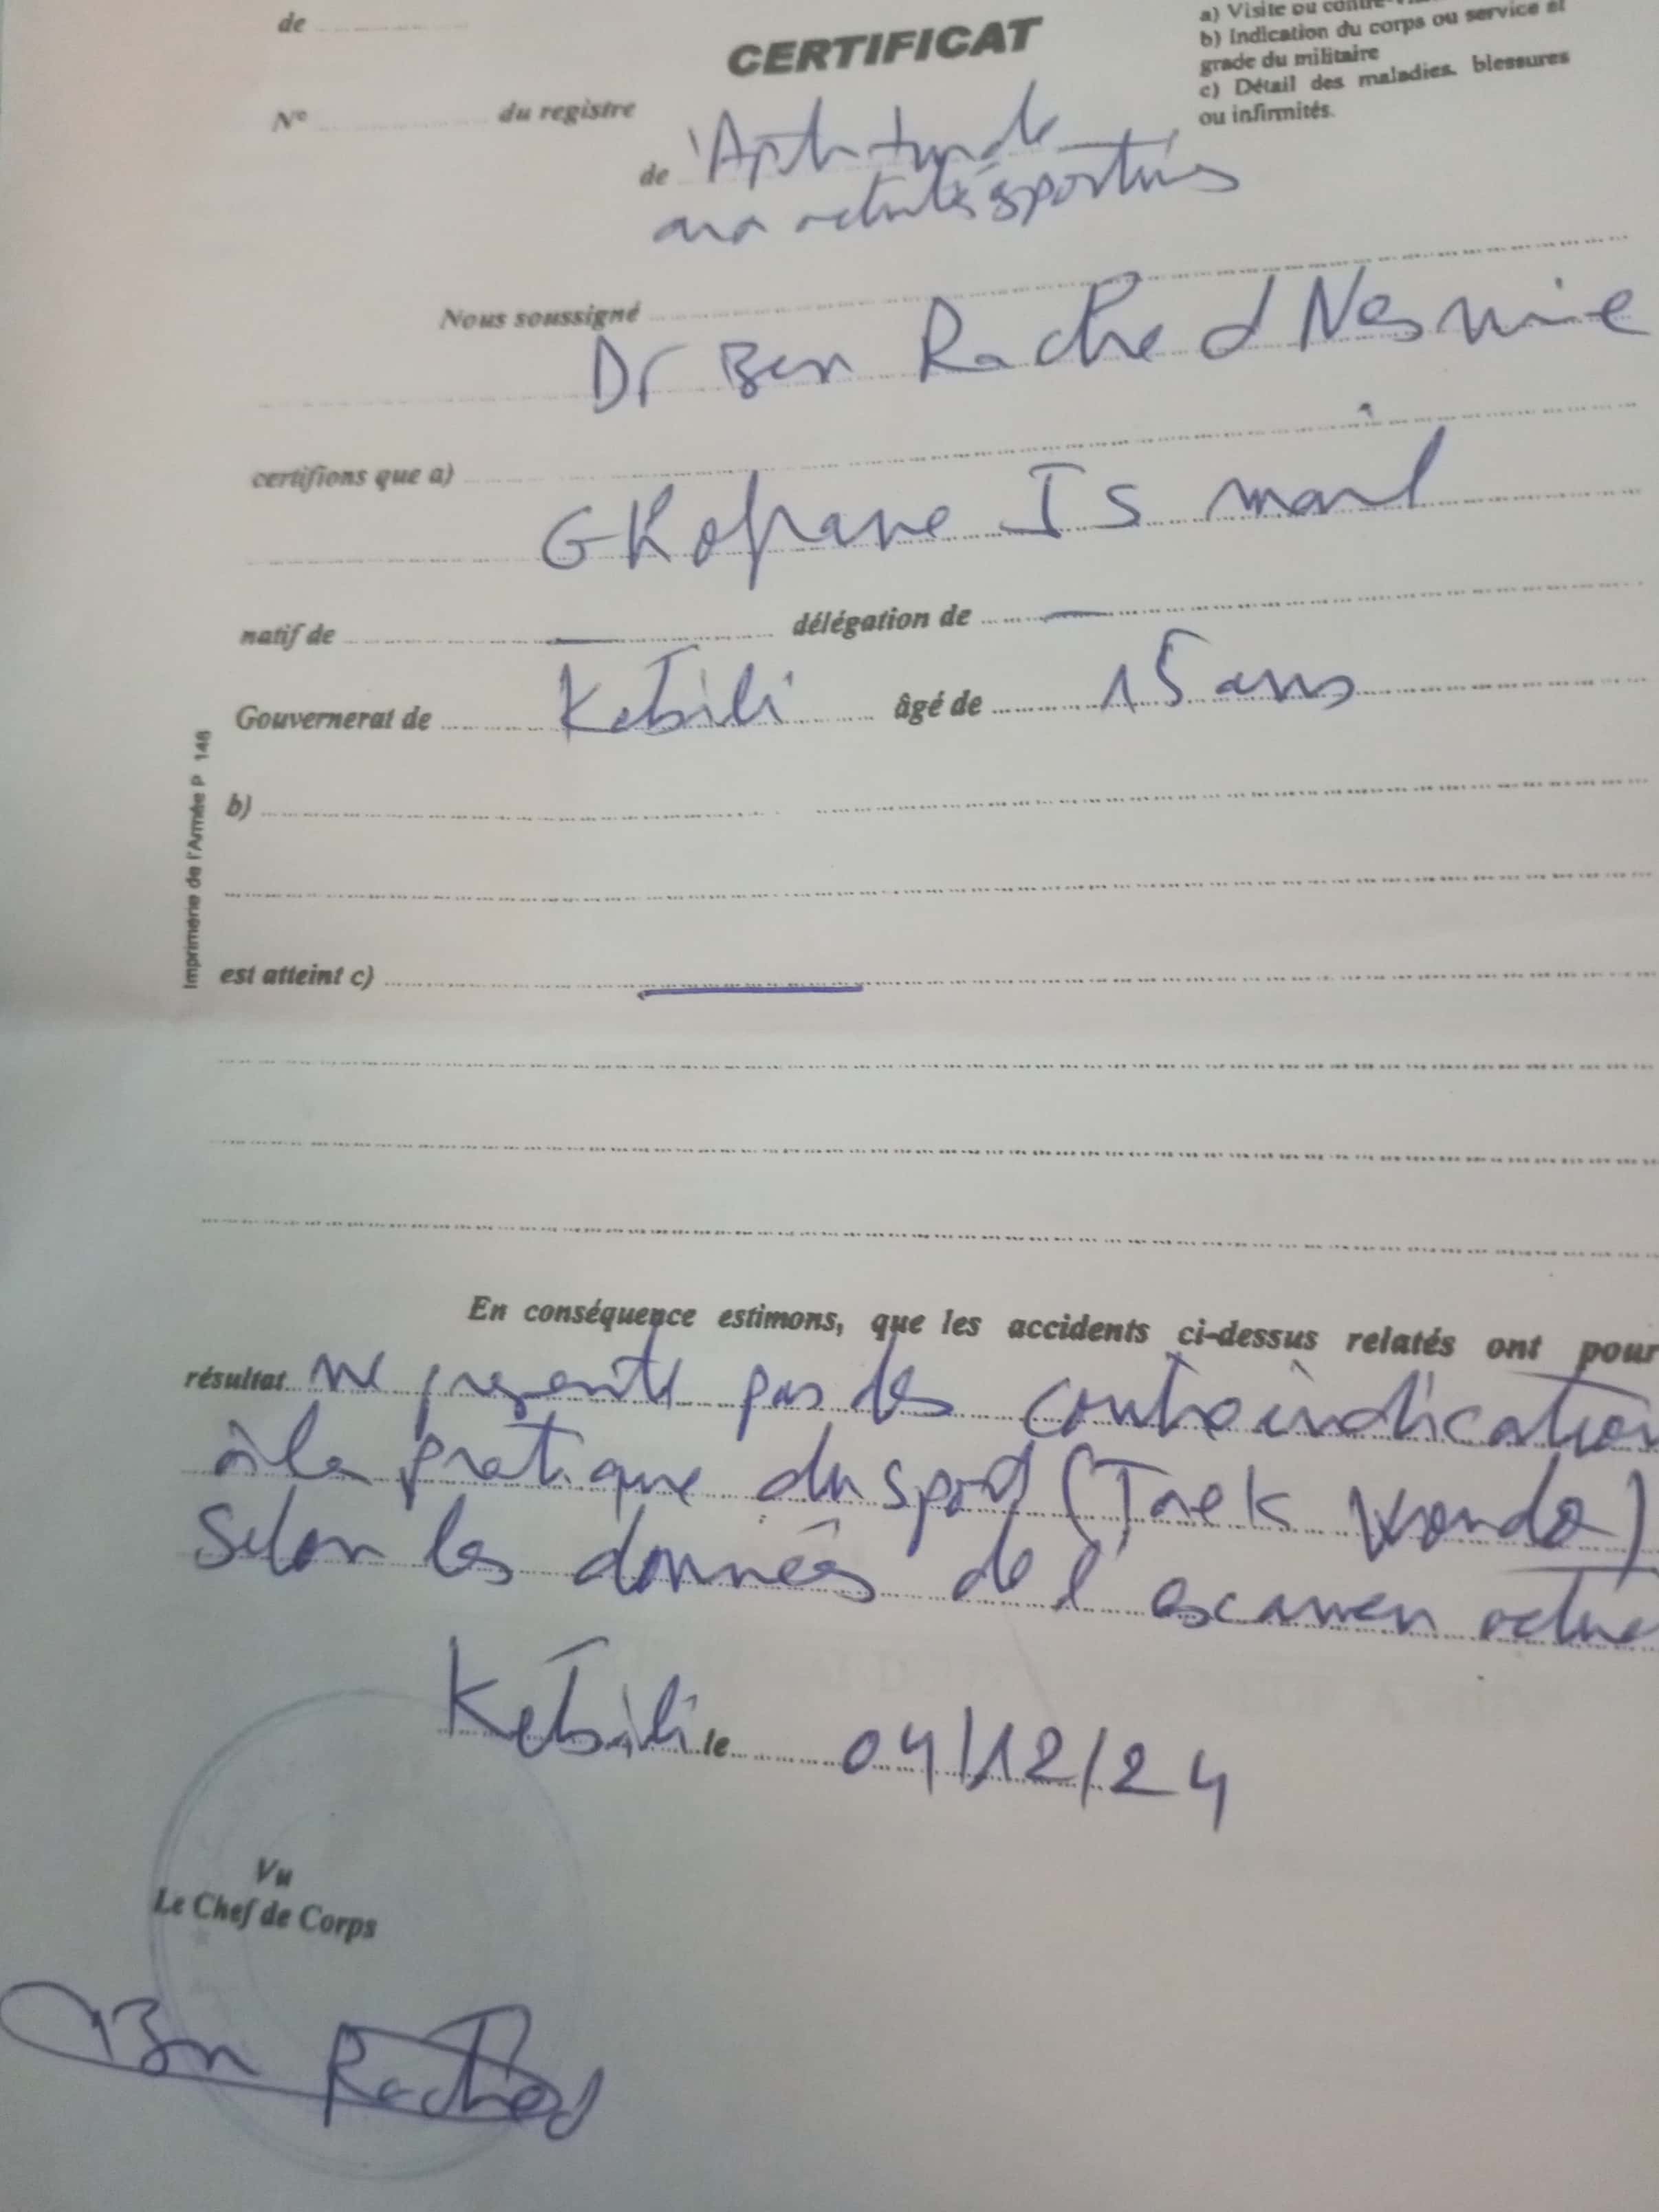 de
CERTIFICAT
a) Visite ou contre-
b) Indication du corps ou service et
grade du militaire
c) Détail des maladies, blessures
ou infirmités.
N° du registre
de 'Aptitude
aux activités sportives
Nous soussigné
Dr Ben Rached Nesrine
certifions que a)
Ismail
natif de — délégation de —
Gouvernerat de Kebili âgé de 15 ans
b)
est atteint c) —
Imprimerie de l'Armée P 148
En conséquence estimons, que les accidents ci-dessus relatés ont pour
résultat ne presente pas des contreindication
à la pratique du sport (Taek Wondo)
Selon les données de l'examen actue
Kebili le 04/12/24
Vu
Le Chef de Corps
Ben Rached